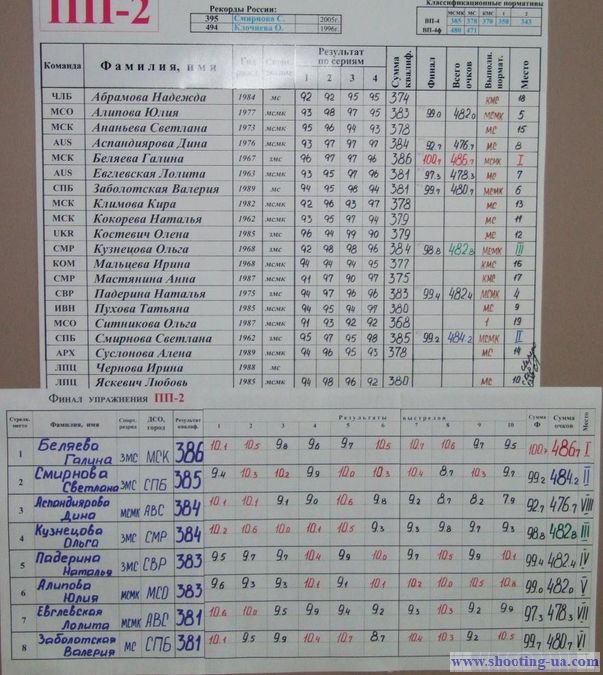 ПП-2
Рекорды России:
395 Смирнова С. 2005г.
494 Клочнева О. 1996г.
Классификационные нормативы
МСМК МС КМС 1 2
ВП-4 385 378 370 358 343
ВП-4ф 480 471
Команда Фамилия, имя Результат по сериям Сумма квалиф. Финал Всего очков Выполн. нормат. Место
1 2 3 4
ЧЛБ Абрамова Надежда 1984 мс 92 92 95 95 374 кмс 18
МСО Алипова Юлия 1977 мсмк 93 98 97 95 383 99.0 482.0 мсмк 5
МСК Ананьева Светлана 1973 мсмк 95 96 94 93 378 мс 15
AUS Аспандиярова Дина 1976 мсмк 93 97 97 97 384 92.7 476.7 мс 8
МСК Беляева Галина 1967 змс 96 97 97 96 386 100.7 486.7 мсмк I
AUS Евглевская Лолита 1963 мсмк 95 97 93 96 381 97.3 478.3 мс 7
СПБ Заболотская Валерия 1989 мс 94 95 98 94 381 99.7 480.7 мсмк 6
МСК Климова Кира 1982 мсмк 92 96 93 97 378 мс 13
МСК Кокорева Наталья 1962 мсмк 93 95 97 94 379 мс 11
UKR Костевич Олена 1985 змс 96 94 99 90 379 мс 12
СМР Кузнецова Ольга 1968 змс 92 98 98 96 384 98.8 482.8 мсмк III
КОМ Мальцева Ирина 1968 мсмк 94 94 94 95 377 кмс 16
СМР Мастянина Анна 1987 мсмк 91 97 90 97 375 кмс 17
СВР Падерина Наталья 1975 змс 94 97 96 96 383 99.4 482.4 мсмк 4
ИВН Пухова Татьяна 1985 мсмк 94 95 94 97 380 мс 9
МСО Ситникова Ольга 1987 мс 91 93 92 92 368 1 19
СПБ Смирнова Светлана 1962 змс 95 97 95 98 385 99.2 484.2 мсмк II
АРХ Суслонова Алена 1989 мсмк 94 96 95 93 378 мс 14
ЛПЦ Чернова Ирина 1988 мс
ЛПЦ Яскевич Любовь 1985 мсмк 94 98 96 92 380 мс 10
Финал упражнения ПП-2
Стрелк. место Фамилия, имя Спорт. разряд ДСО, город Результат квалиф Результаты выстрелов Сумма Ф Сумма очков Место
1 2 3 4 5 6 7 8 9 10
1 Беляева Галина змс МСК 386 10.1 10.5 9.8 9.6 9.7 10.6 10.7 10.6 9.7 9.5 100.7 486.7 I
2 Смирнова Светлана змс СПБ 385 9.4 10.3 10.2 9.9 10.0 10.3 10.4 8.7 10.3 9.7 99.2 484.2 II
3 Аспандиярова Дина мсмк АВС 384 10.1 10.1 9.1 9.0 10.6 9.8 9.2 8.7 8.2 7.9 92.7 476.7 VIII
4 Кузнецова Ольга змс СМР 384 10.2 10.6 10.0 10.1 10.5 9.3 9.3 9.8 9.7 9.3 98.8 482.8 III
5 Падерина Наталья змс СВР 383 9.5 9.7 9.7 10.4 9.9 10.0 9.7 10.5 9.9 10.1 99.4 482.4 IV
6 Алипова Юлия мсмк МСО 383 9.6 9.3 9.3 10.1 10.1 10.1 10.2 10.0 10.5 9.8 99.0 482.0 V
7 Евглевская Лолита мсмк АВС 381 10.6 10.0 9.5 9.4 9.2 9.5 9.3 10.3 9.2 9.9 97.3 478.3 VII
8 Заболотская Валерия мс СПБ 381 10.1 9.5 9.9 10.4 10.7 8.7 10.4 10.3 9.2 10.5 99.7 480.7 VI
www.shooting-ua.com